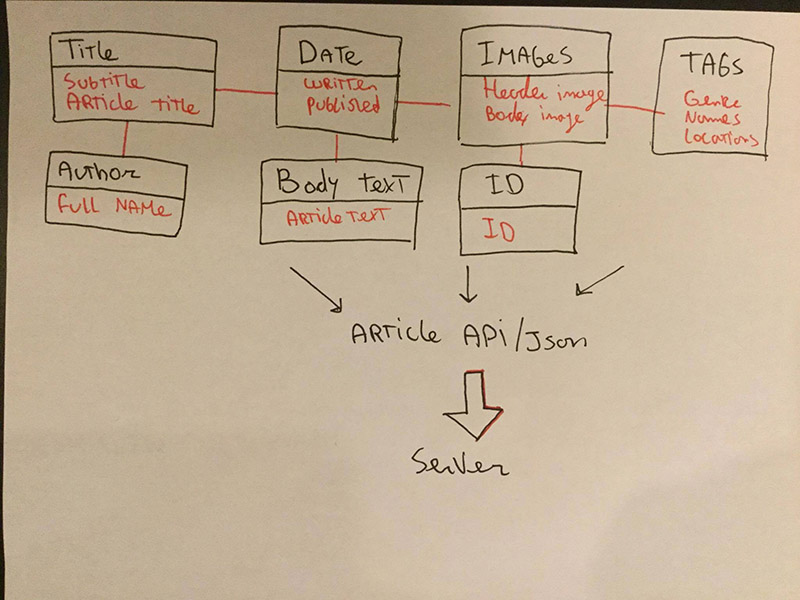 Title
Subtitle
Article title
Date
Written
Published
Images
Header image
Body image
Tags
Genre
Names
Locations
Author
Full Name
Body text
Article text
ID
ID
Article Api/Json
Server